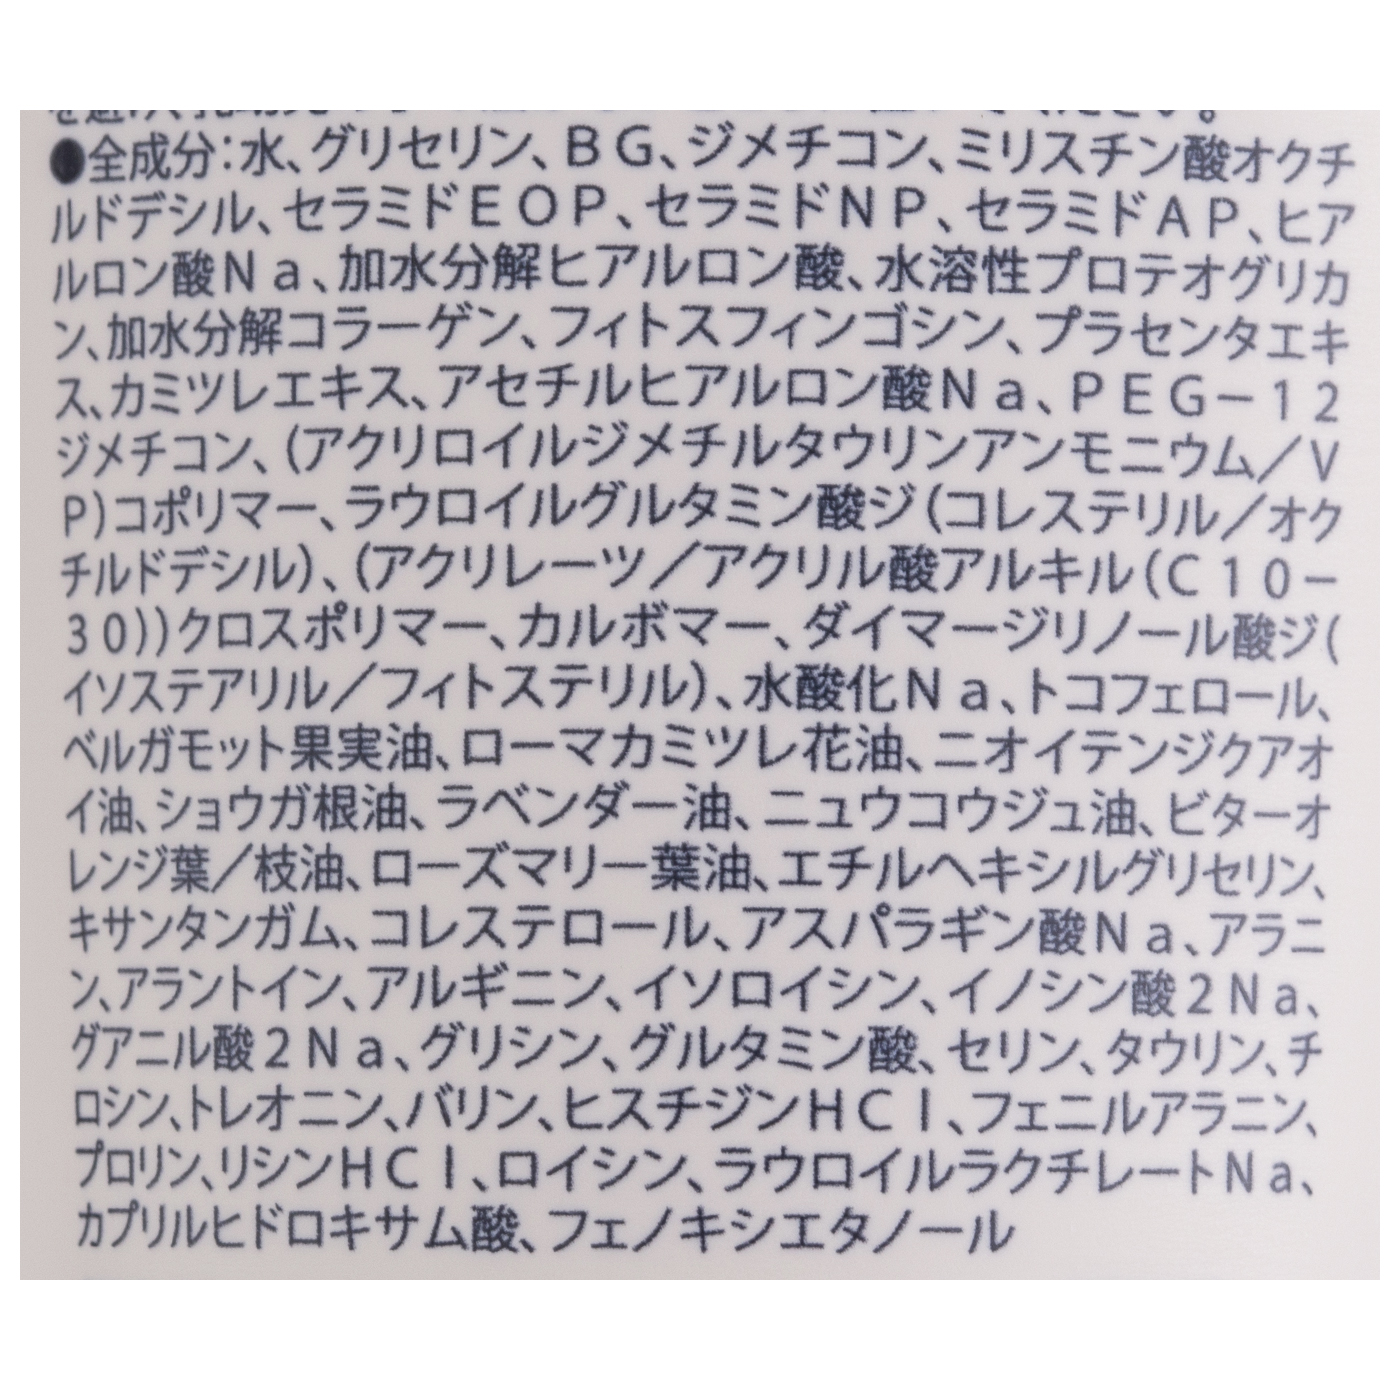 ●全成分：水、グリセリン、ＢＧ、ジメチコン、ミリスチン酸オクチ
ルドデシル、セラミドＥＯＰ、セラミドＮＰ、セラミドＡＰ、ヒア
ルロン酸Ｎａ、加水分解ヒアルロン酸、水溶性プロテオグリカ
ン、加水分解コラーゲン、フィトスフィンゴシン、プラセンタエキ
ス、カミツレエキス、アセチルヒアルロン酸Ｎａ、ＰＥＧ－１２
ジメチコン、（アクリロイルジメチルタウリンアンモニウム／Ｖ
Ｐ）コポリマー、ラウロイルグルタミン酸ジ（コレステリル／オク
チルドデシル）、（アクリレーツ／アクリル酸アルキル（Ｃ１０－
３０））クロスポリマー、カルボマー、ダイマージリノール酸ジ（
イソステアリル／フィトステリル）、水酸化Ｎａ、トコフェロール、
ベルガモット果実油、ローマカミツレ花油、ニオイテンジクアオ
イ油、ショウガ根油、ラベンダー油、ニュウコウジュ油、ビターオ
レンジ葉／枝油、ローズマリー葉油、エチルヘキシルグリセリン、
キサンタンガム、コレステロール、アスパラギン酸Ｎａ、アラニ
ン、アラントイン、アルギニン、イソロイシン、イノシン酸２Ｎａ、
グアニル酸２Ｎａ、グリシン、グルタミン酸、セリン、タウリン、チ
ロシン、トレオニン、バリン、ヒスチジンＨＣｌ、フェニルアラニン、
プロリン、リシンＨＣｌ、ロイシン、ラウロイルラクチレートＮａ、
カプリルヒドロキサム酸、フェノキシエタノール